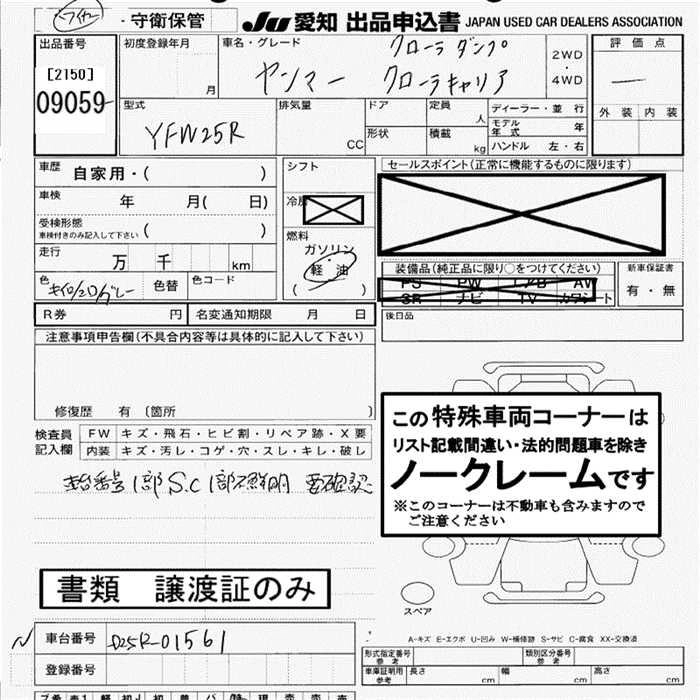 ワイヤー・守衛保管 JU 愛知 出品申込書 JAPAN USED CAR DEALERS ASSOCIATION
出品番号 [2150] 09059
初度登録年月 月
車名・グレード クローラダンプ
ヤンマー クローラキャリア
2WD ・ 4WD
評価点 ー
外装 内装
型式 YFW25R
排気量 CC
ドア 形状
定員 人
積載 kg
ディーラー・並行
モデル年式 年
ハンドル 左・右
車歴 自家用・( )
車検 年 月( 日)
受検形態 車検付きのみ記入して下さい ( )
走行 万 千 km
色 キイロ/2D/グレー 色替 色コード
シフト
冷房
燃料 ガソリン・軽油 ( )
セールスポイント(正常に機能するものに限ります)
装備品(純正品に限り○をつけてください)
PS PW エアB AW
SR ナビ TV カワシート
新車保証書 有・無
R券 円 名変通知期限 月 日
後日品
注意事項申告欄(不具合内容等は具体的に記入して下さい)
修復歴 有 〔箇所 〕
検査員記入欄
FW キズ・飛石・ヒビ割・リペア跡・X要
内装 キズ・汚レ・コゲ・穴・スレ・キレ・破レ
1部S.C 1部不鮮明 要確認
この特殊車両コーナーは
リスト記載間違い・法的問題車を除き
ノークレームです
※このコーナーは不動車も含みますのでご注意ください
書類 譲渡証のみ
スペア
N 車台番号 D25R-01561
登録番号
A-キズ E-エクボ U-凹み W-補修跡 S-サビ C-腐食 XX-交換済
形式指定番号 参考 類別区分番号 参考
車庫証明用 参考 長さ cm 幅 cm 高さ cm